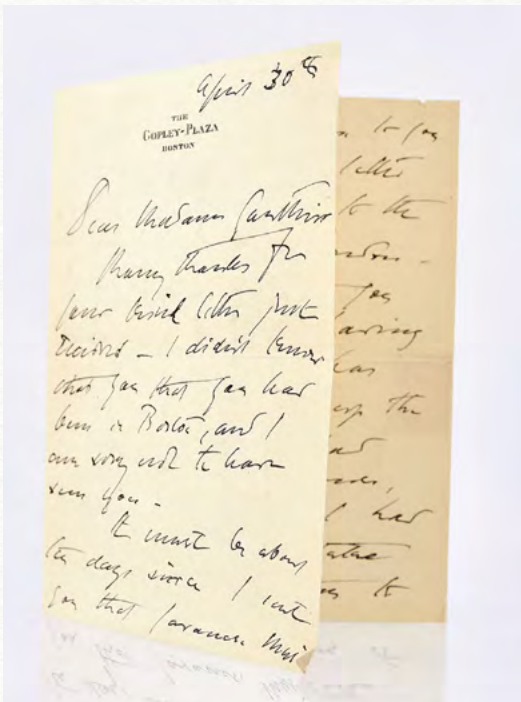 April 30th
THE
COPLEY-PLAZA
BOSTON
Dear Madame Gauthier
Many thanks for
your kind letter just
received – I didn't know
that you that you had
been in Boston, and I
am sorry not to have
seen you –
It must be about
ten days since I sent
you that Javanese Music
to you
letter
to the
you
having
has
the
had
I had
to